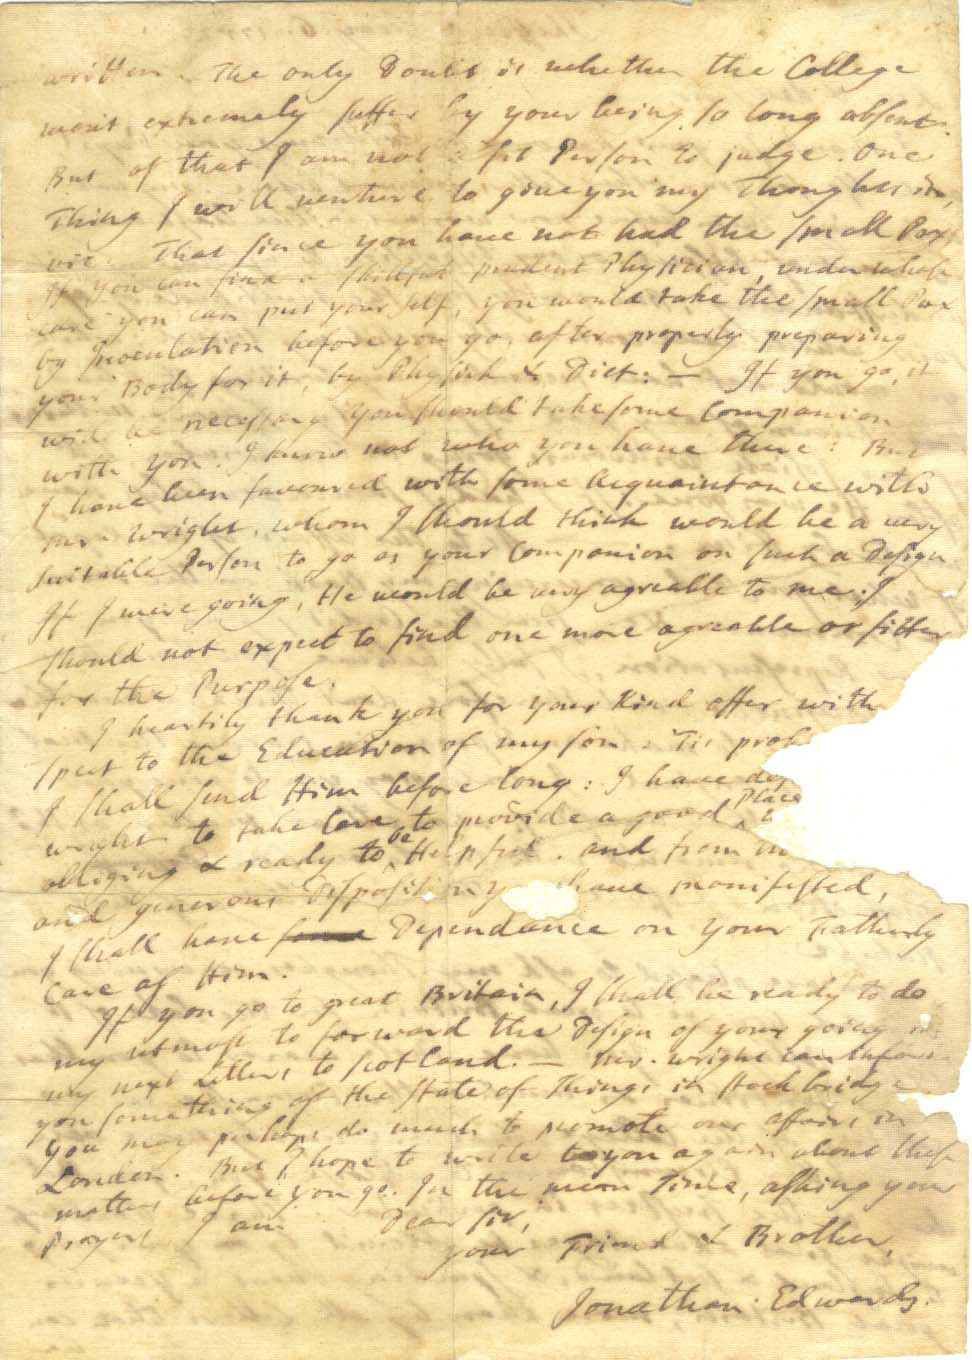 written. The only Doubt is whether the College
wont extremely suffer by your being so long absent.
But of that I am not a fit Person to judge. One
Thing I will venture to give you my Thoughts in,
viz. That since you have not had the small Pox,
If you can find a skillful prudent Physician, under whose
care you can put your self, you would take the small Pox
by Inoculation before you go, after properly preparing
your Body for it, by Physick & Diet: — If you go, it
will be necessary you should take some Companion
with you. I know not who you have there: But
I have been favoured with some Acquaintance with
Mr. Wright, whom I should think would be a very
suitable Person to go as your Companion on such a Design
If I were going, He would be very agreable to me: I
should not expect to find one more agreable or fitter
for the Purpose.
I heartily thank you for your Kind offer with
spect to the Education of my son: Tis prob
I shall send Him before long: I have des
wright to take Care to provide a good Place
obliging & ready to be Helpful. and from
and generous Disposition you have manifested,
I shall have some Dependance on your Fatherly
Care of Him.
If you go to great Britain, I shall be ready to do
my utmost to forward the Design of your going in
my next Letters to Scotland. — Mr. Wright can inform
you something of the State of Things in Stockbridge
You may perhaps do much to promote our affairs in
London. But I hope to write to you again about these
matters before you go. In the mean Time, asking your
Prayers I am Dear Sir,
your Friend & Brother,
Jonathan Edwards.